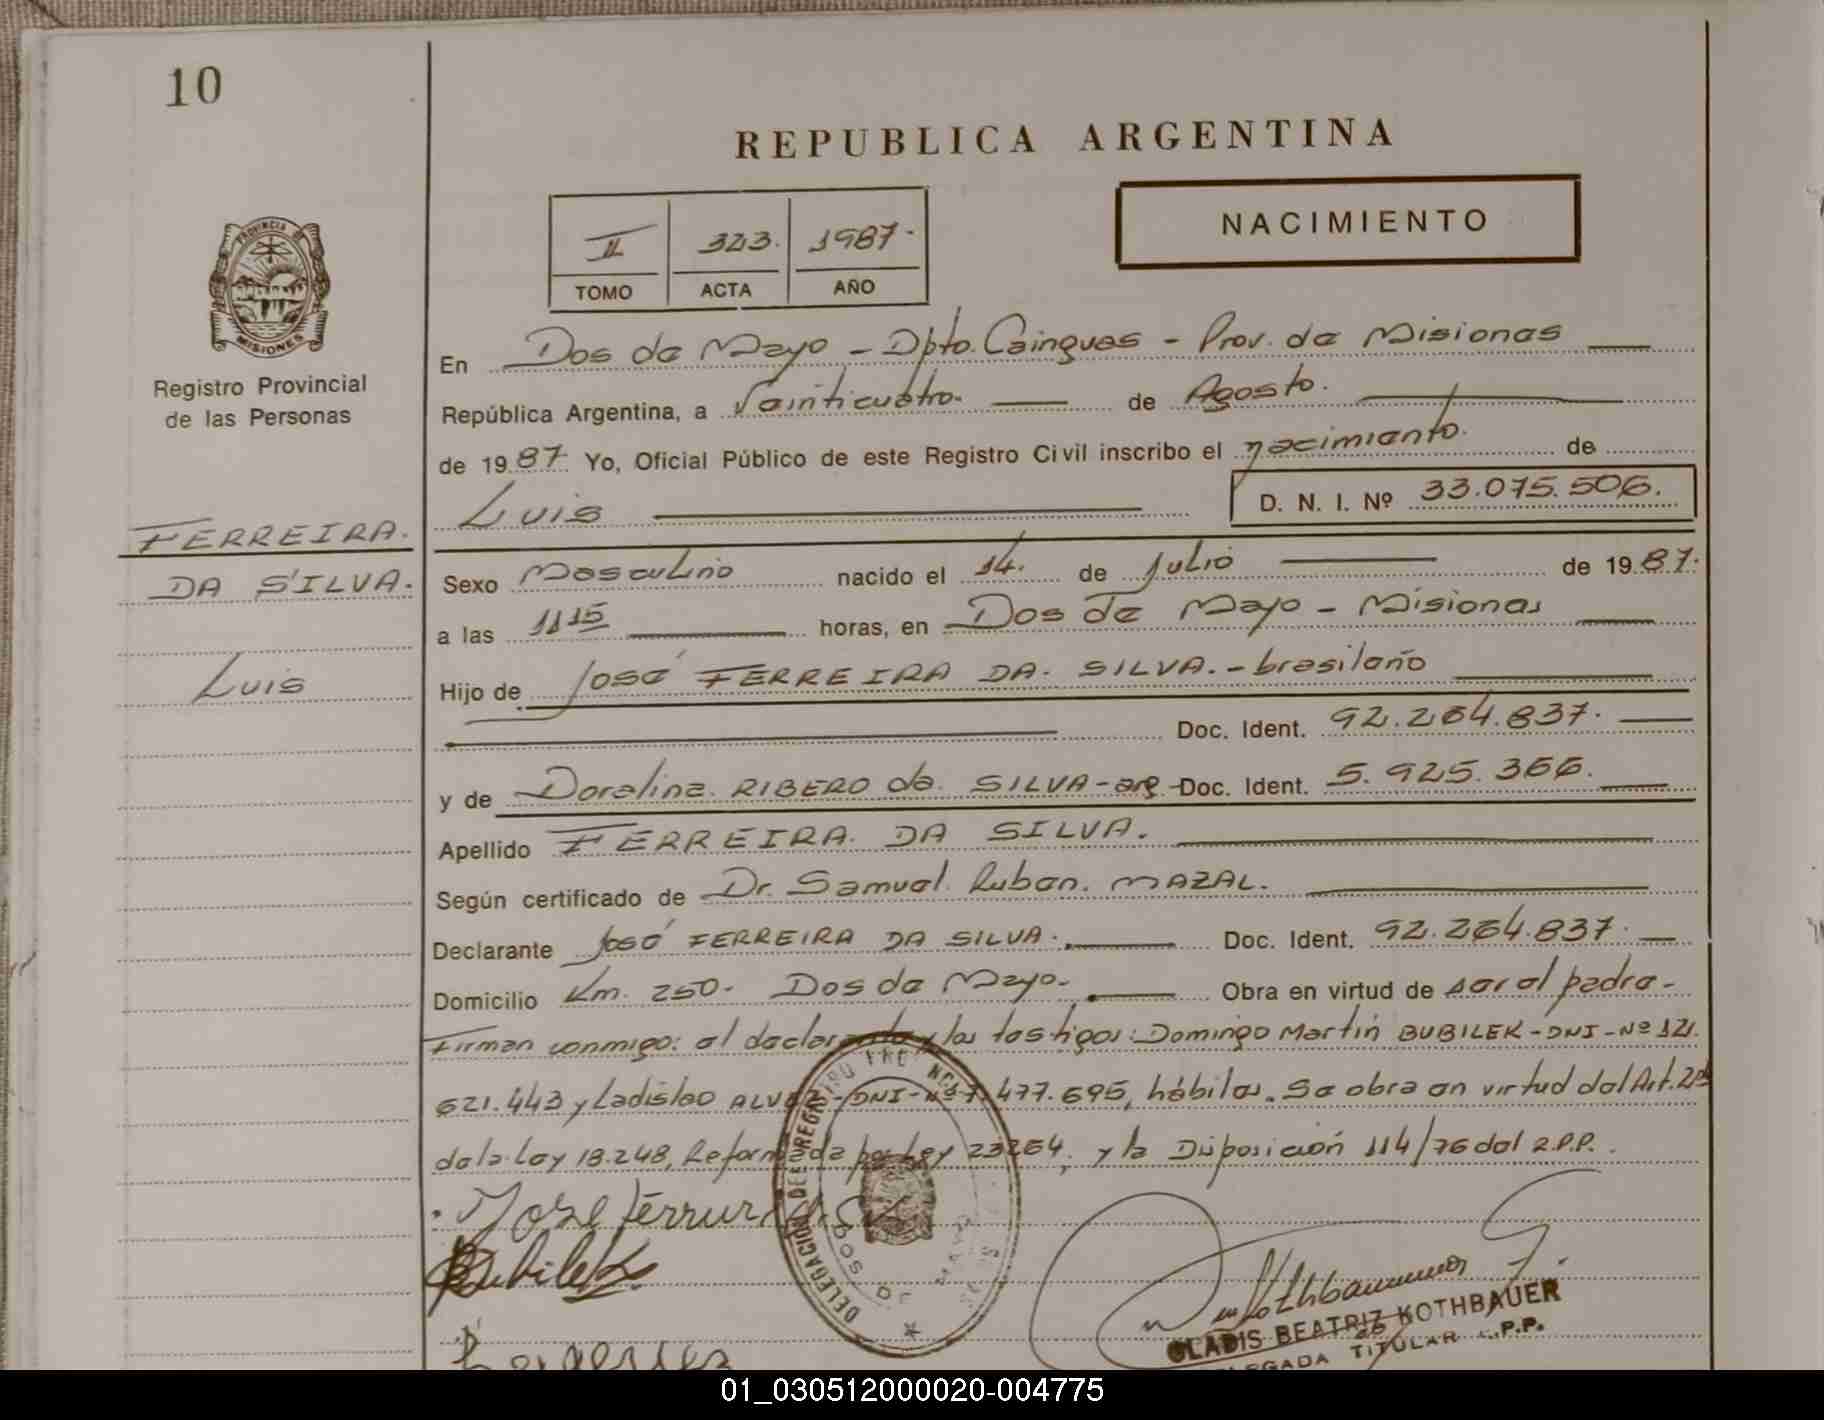 10
REPUBLICA ARGENTINA
NACIMIENTO
II 323. 1987.
TOMO ACTA AÑO
PROVINCIA DE
MISIONES
Registro Provincial
de las Personas
En Dos de Mayo - Dpto. Cainguas - Prov. de Misiones
República Argentina, a Veinticuatro. de Agosto.
de 1987. Yo, Oficial Público de este Registro Civil inscribo el nacimiento. de
Luis D. N. I. Nº 33.075.506.
FERREIRA.
DA SILVA.
Luis
Sexo Masculino nacido el 14. de Julio de 1987.
a las 11 15 horas, en Dos de Mayo - Misiones
Hijo de José FERREIRA DA. SILVA. - brasileño
Doc. Ident. 92.264.837.
y de Doralina. RIBERO da. SILVA - arg - Doc. Ident. 5.925.366.
Apellido FERREIRA. DA SILVA.
Según certificado de Dr. Samuel. Ruben. MAZAL.
Declarante José FERREIRA DA SILVA. Doc. Ident. 92.264.837.
Domicilio Km. 250. Dos de Mayo. Obra en virtud de ser el padre.
Firman conmigo: el declarante y los testigos: Domingo Martín BUBILEK - DNI - Nº 12.
621.443 y Ladislao ALVEZ - DNI - Nº 7.477.695, hábiles. Se obra en virtud del Art. 2do
de la Ley 18.248, Reformada por Ley 23264, y la Disposición 114/76 del R.P.P.
DELEGACION DE REGISTRO
DOS DE MAYO
Jose Ferrur
Bubilek
Kothbauer G.
GLADIS BEATRIZ KOTHBAUER
DELEGADA TITULAR R.P.P.
01_030512000020-004775